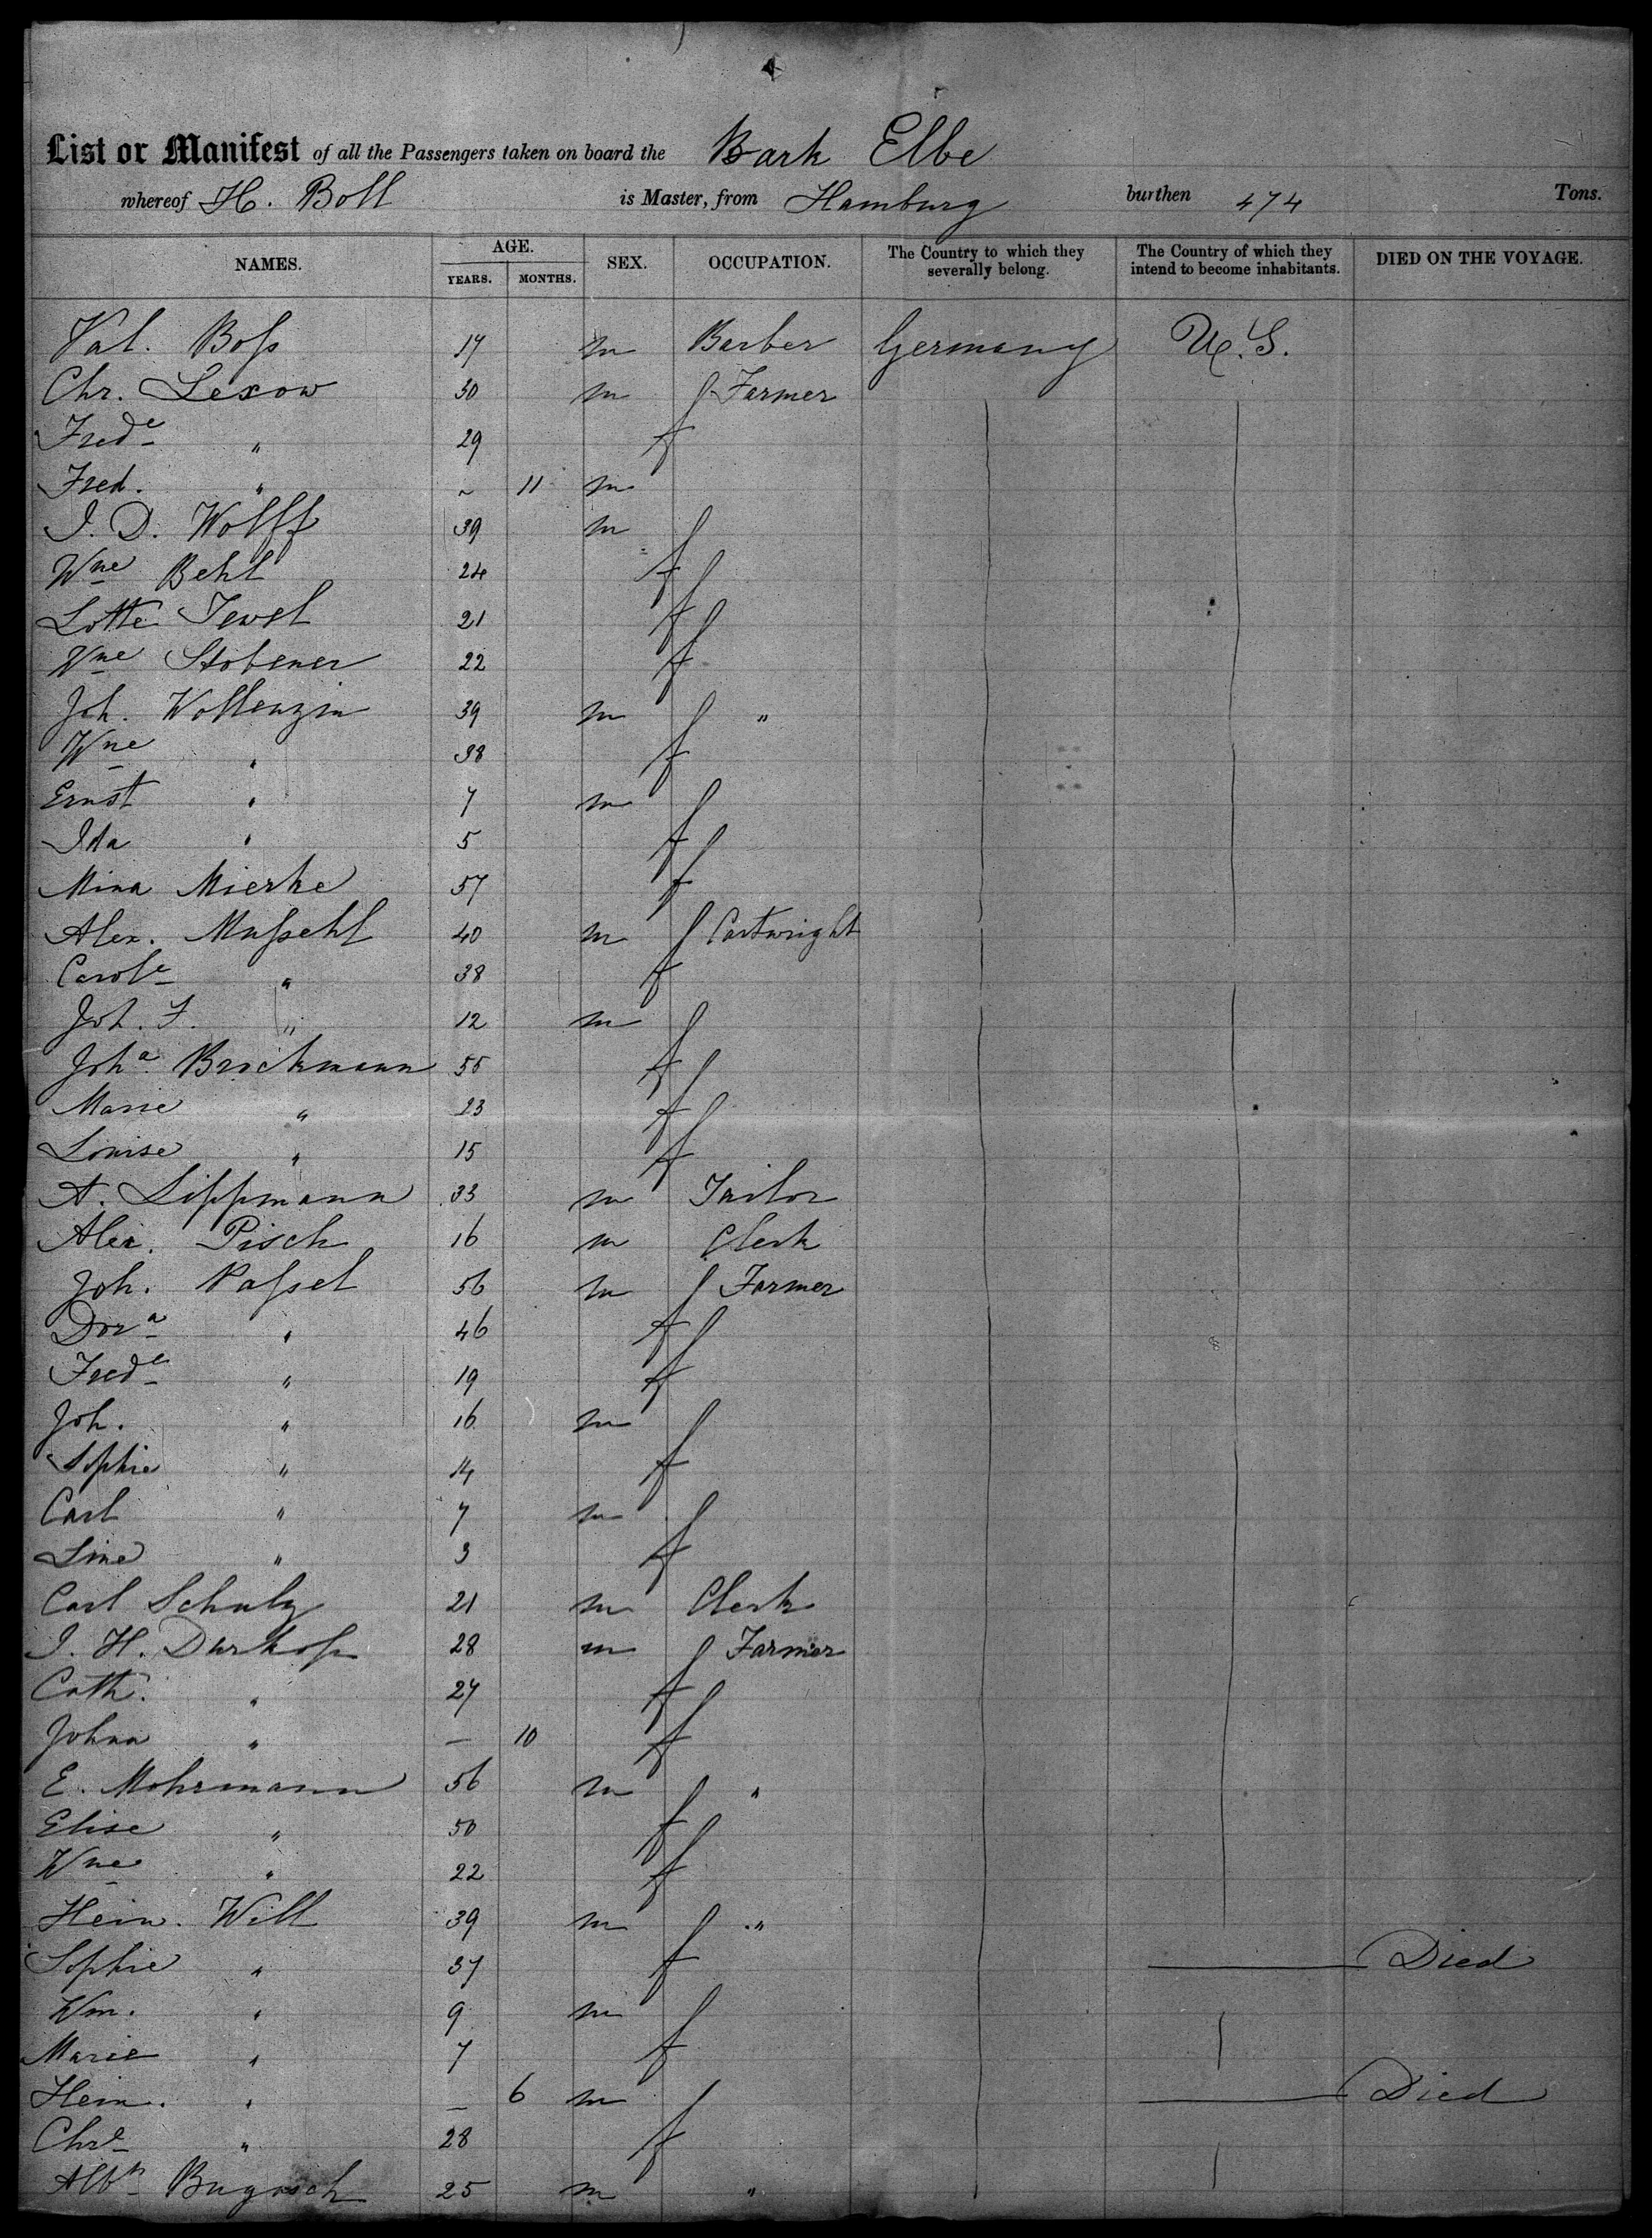 List or Manifest of all the Passengers taken on board the Bark Elbe
whereof H. Boll is Master, from Hamburg burthen 474 Tons.
NAMES. AGE. YEARS. MONTHS. SEX. OCCUPATION. The Country to which they severally belong. The Country of which they intend to become inhabitants. DIED ON THE VOYAGE.
Val. Boſs 17 m Barber Germany U.S.
Chr. Lexow 30 m Farmer
Fredᵉ " 29 f
Fred. " ~ 11 m
J. D. Wolff 39 m
Wne Behl 24 f
Lotte Tewst 21 f
Wne Stobener 22 f
Joh. Wollenzin 39 m "
Wne " 38 f
Ernst " 7 m
Ida " 5 f
Mina Mierke 57 f
Alex. Muſsehl 40 m Cartwright
Carolᵉ " 38 f
Joh. F. " 12 m
Johᵃ Brockmann 55 f
Marie " 23 f
Louise " 15 f
A. Lippmann 33 m Tailor
Alex. Pisch 16 m Clerk
Joh. Paſsel 56 m Farmer
Dorᵃ " 46 f
Fredᵉ " 19 f
Joh. " 16 m
Sophie " 14 f
Carl " 7 m
Line " 3 f
Carl Schulz 21 m Clerk
J. H. Durkop 28 m Farmer
Cath. " 27 f
Johna " — 10 f
E. Mohrmann 56 m "
Elise " 50 f
Wne " 22 f
Hein. Will 39 m "
Sophie " 37 f Died
Wm. " 9 m
Marie " 7 f
Hein. " — 6 m Died
Chrᵉ " 28 f
Albᵗ 25 m "